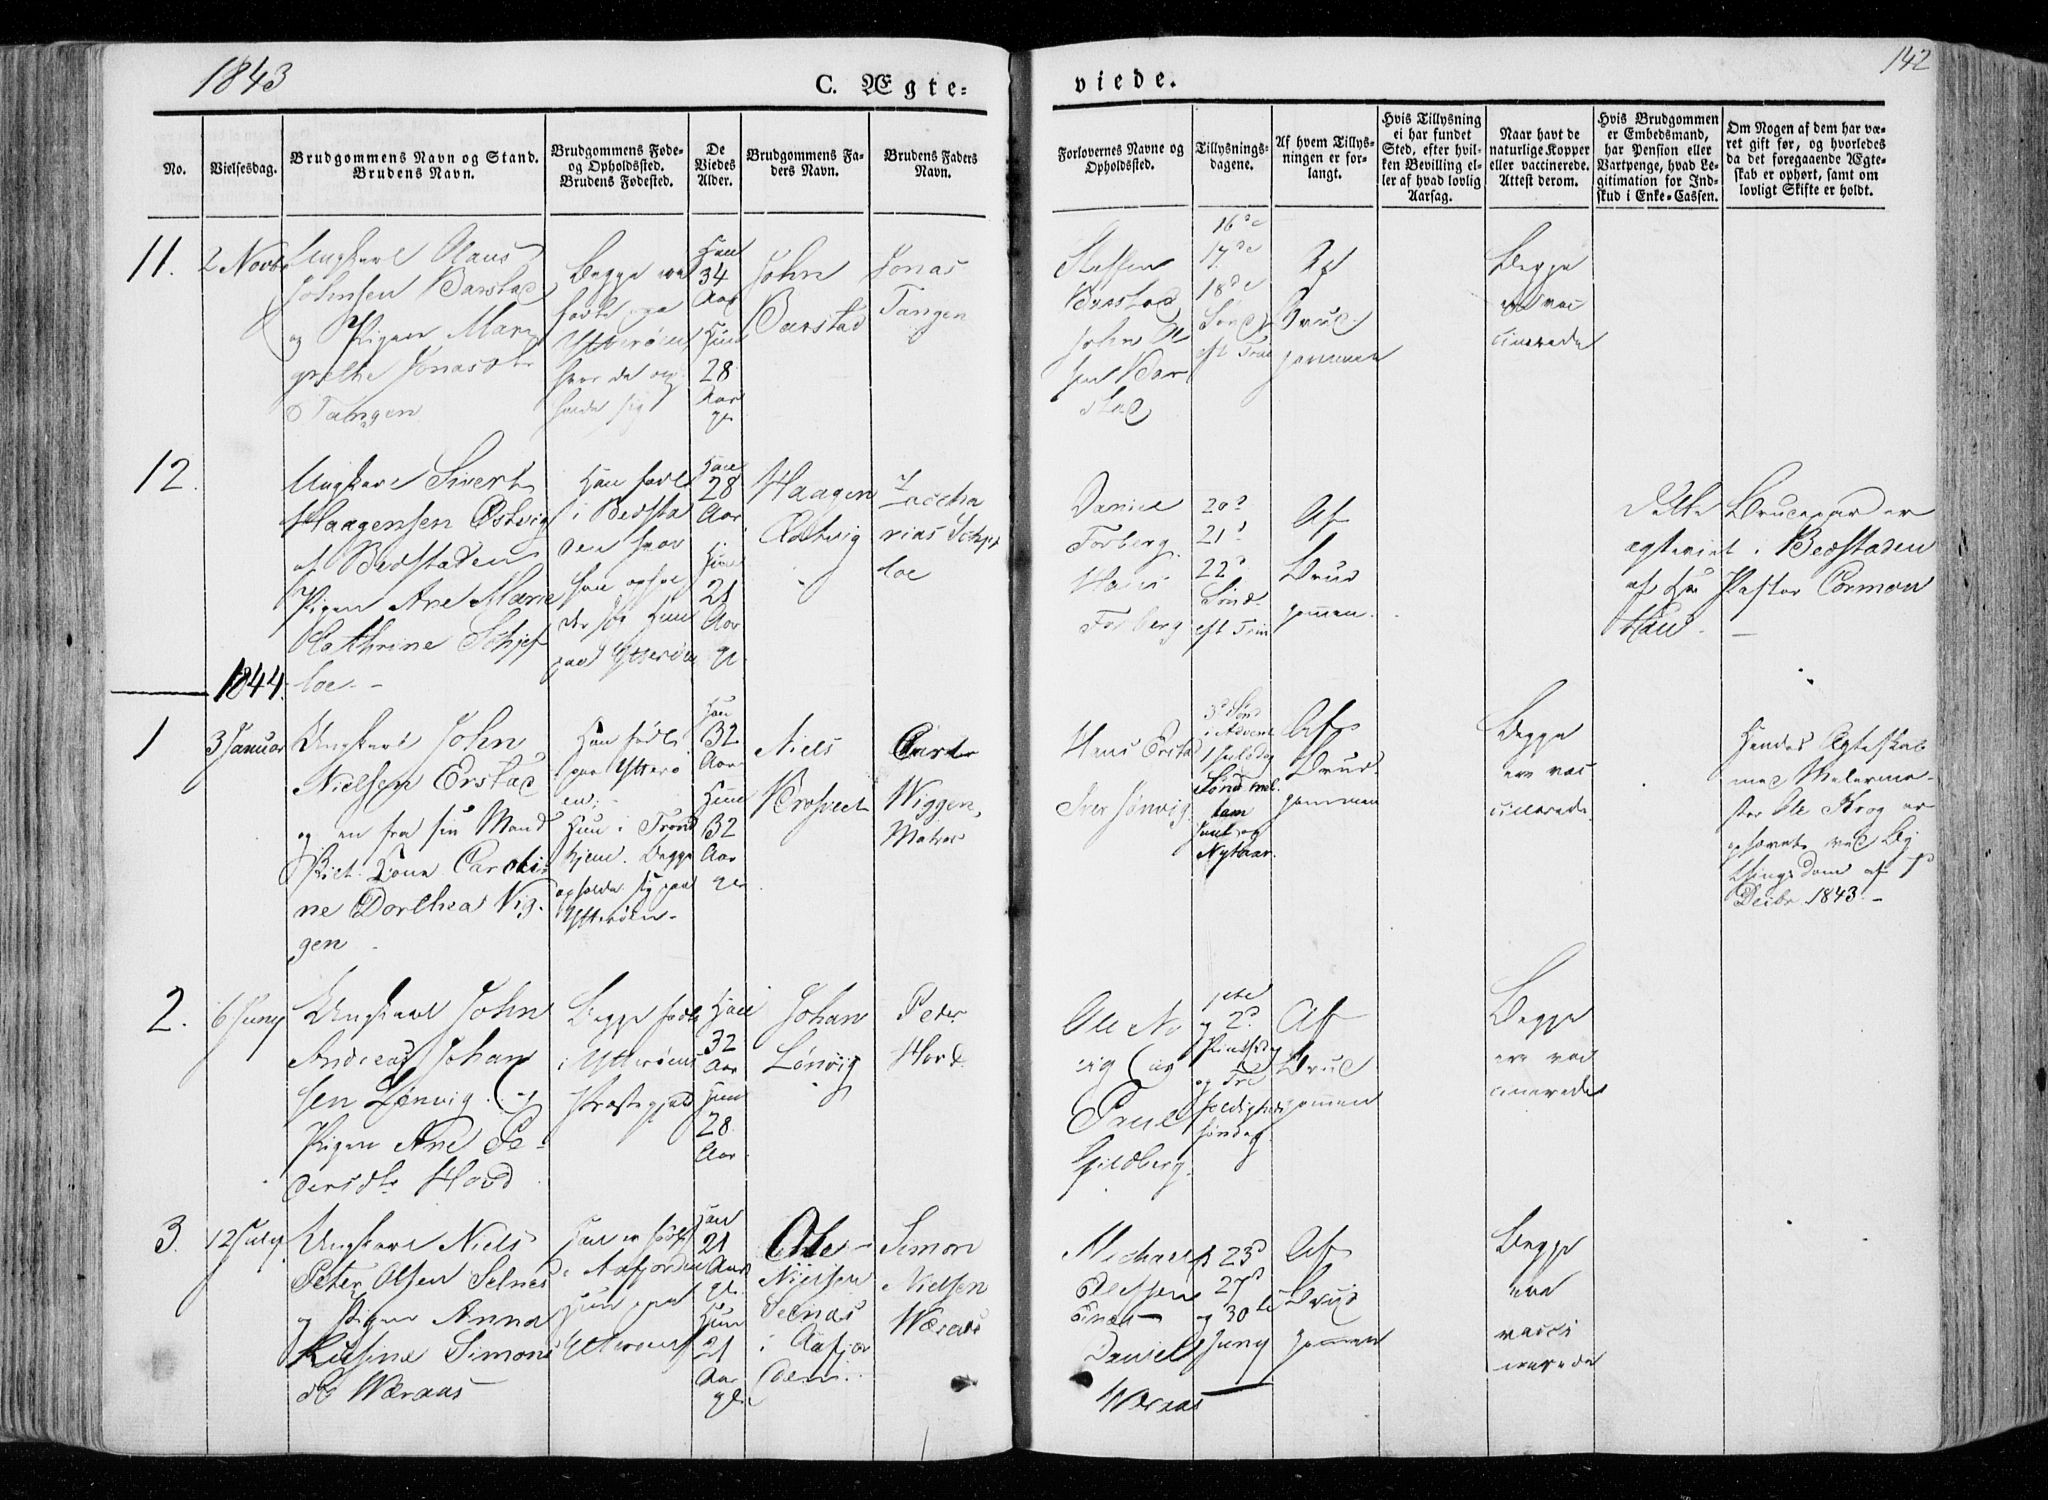 1843
C. Ægte-
viede.
142
No.
Vielsesdag.
Brudgommens Navn og Stand.
Brudens Navn.
Brudgommens Føde-
og Opholdssted.
Brudens Fødested.
De
Viedes
Alder.
Brudgommens Fa-
ders Navn.
Brudens Faders
Navn.
Forlovernes Navne og
Opholdssted.
Tillysnings-
dagene.
Af hvem Tillys-
ningen er for-
langt.
Hvis Tillysning
ei har fundet
Sted, efter hvil-
ken Bevilling el-
ler af hvad lovlig
Aarsag.
Naar havt de
naturlige Kopper
eller vaccinerede.
Attest derom.
Hvis Brudgommen
er Embedsmand,
har Pension eller
Vartpenge, hvad Le-
gitimation for Ind-
skud i Enke-Cassen.
Om Nogen af dem har væ-
ret gift før, og hvorledes
da det foregaaende Ægte-
skab er ophørt, samt om
lovligt Skifte er holdt.
11.
2 Novbr
Ungkarl Olaus
Johnsen Barstad
og Pigen Mar
grethe Jonasdtr
Tangen
Begge ere
fødte paa
Ytterøen,
hvor de op
holde sig
Han
34
Aar
Hun
28
Aar
gl.
John
Barstad
Jonas
Tangen
Steffen
Barstad
John Ol
sen Bar
stad
16de
17de
18de
Sønd.
eft Trin
Af
Brud
gommen
Begge
ere vac
cinerede
12.
Ungkarl Sivert
Haagensen Østvig
af Bedstaden
Pigen Ane Marie
Cathrine Schjef
loe
Han født
i Bedsta
den hvor
han ophol
der sig Hun
paa Ytterøen
Han
28
Aar
Hun
21
Aar
gl.
Haagen
Østvig
Zaccha
rias Schjef
loe
Daniel
Forberg.
Hans
Forberg
20d
21d
22d
Sønd.
eft Trin
Af
Brud
gommen.
Dette Brudepar er
ægteviet i Bedstaden
af Hr Pastor Cormon
Hau
1844.
1
3 Januar
Ungkarl John
Nielsen Erstad
og en fra sin Mand
skilt Kone Caroli
ne Dorthea Vig-
gen
Han født
paa Ytterø
en;
Hun i Trond
hjem. Begge
opholde sig paa
Ytterøen
Han
32
Aar
Hun
32
Aar
gl.
Niels
Wiggen,
Matros
Hans Erstad
Iver Sønvig
3d Sønd
i Advent
1 Juledag
Sønd mel
lem
Juul og
Nytaar.
Af
Brud
gommen
Begge
ere vac
cinerede
Hendes Ægteskab
med Malerme-
ster Ole Krog er
ophævet ved By
thingsdom af
Decbr 1843.
2.
6 Juny
Ungkarl John
Andreas Johan
sen Lønvig. og
Pigen Ane Pe-
dersdtr Hovd
Begge fødte
i Ytterøens
Præstegjeld
Han
32
Aar
Hun
28
Aar
Johan
Lønvig
Peder
Hovd.
Ole No
vig og
Poul
Gjildberg.
1ste
og 2d
Pintsedag
og Tre
foldigheds
søndag.
Af
Brud
gommen
Begge
ere vac
cinerede
3.
12 July
Ungkarl Niels
Peter Olsen Selnes
og Pigen Anna
Rusine Simons
dtr Wæraas
Han er født
i Aafjorden
Hun paa
Ytterøen
Han
21
Aar
gl.
Hun
21
Aar
gl.
Ole
Nielsen
Selnæs
i Aafjor
den.
Simon
Nielsen
Wæraas
Michael
Ellefsen
Enæs
Daniel
Wæraas
23d
27d
og 30te
Juny
Af
Brud
gommen
Begge
ere
vacci
nerede